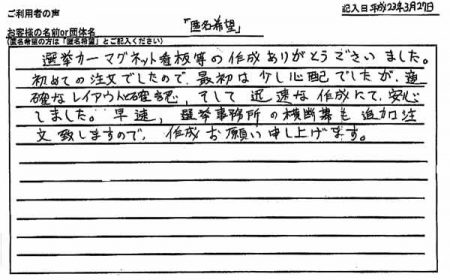 ご利用者の声
記入日平成23年3月27日
お客様の名前or団体名 「匿名希望」
(匿名希望の方は「匿名希望」とご記入ください)
選挙カーマグネット看板等の作成ありがとうございました。
初めての注文でしたので、最初は少し心配でしたが、適
確なレイアウトと確認、そして迅速な作成にて、安心
しました。早速、選挙事務所の横断幕も追加注
文致しますので、作成お願い申し上げます。